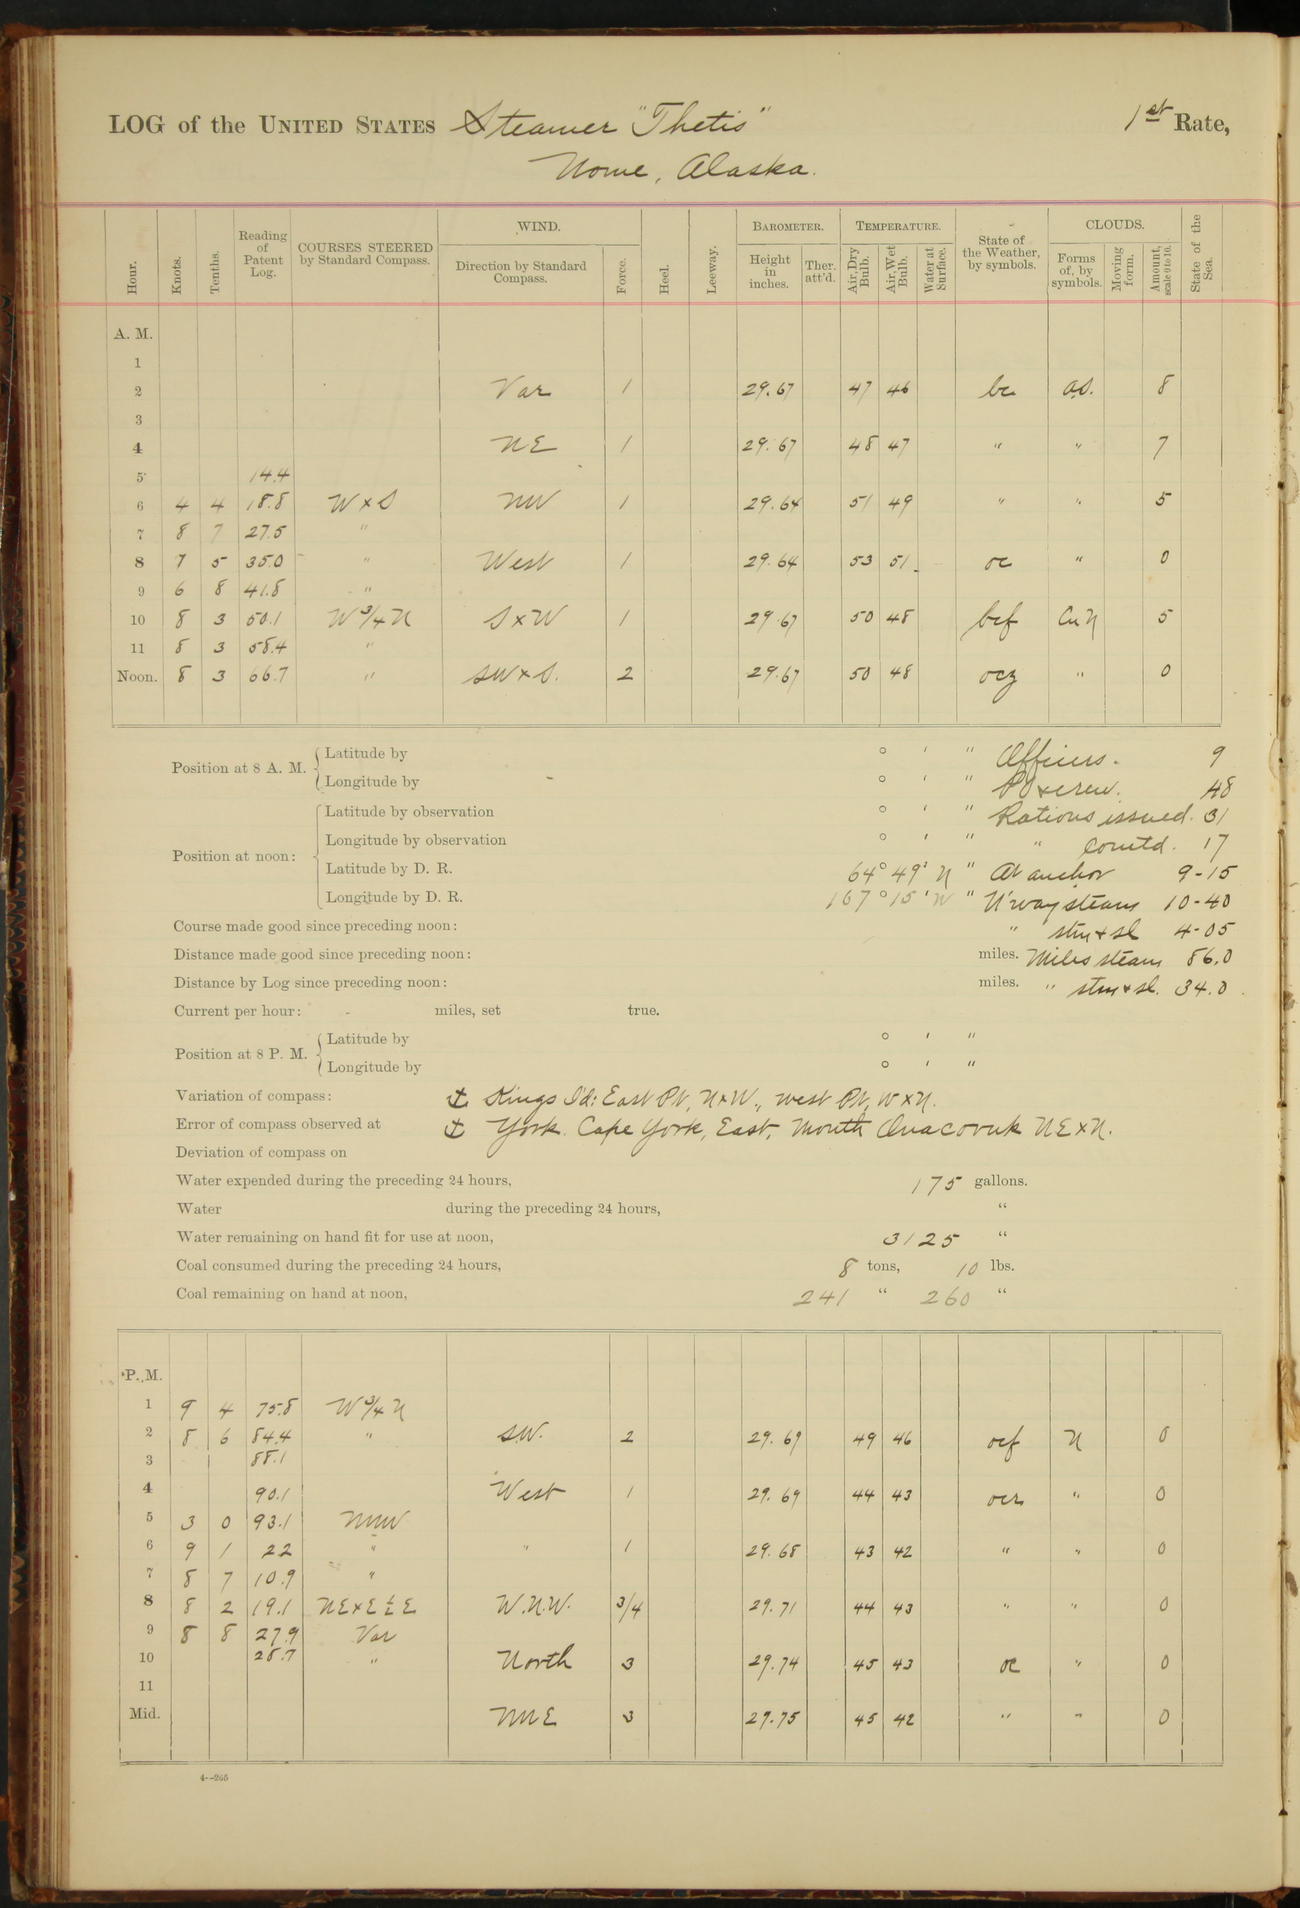 LOG of the UNITED STATES Steamer "Thetis" 1st Rate,
Nome, Alaska.
Hour. Knots. Tenths. Reading of Patent Log. COURSES STEERED by Standard Compass. WIND. Direction by Standard Compass. Force. Heel. Leeway. BAROMETER. Height in inches. Ther. att'd. TEMPERATURE. Air, Dry Bulb. Air, Wet Bulb. Water at Surface. State of the Weather, by symbols. CLOUDS. Forms of, by symbols. Moving form. Amount, scale 0 to 10. State of the Sea.
A. M.
1
2 Var 1 29.67 47 46 bc a.s. 8
3
4 NE 1 29.67 48 47 " " 7
5 14.4
6 4 4 18.8 W x S NW 1 29.64 51 49 " " 5
7 8 7 27.5 "
8 7 5 35.0 " West 1 29.64 53 51 oc " 0
9 6 8 41.8 "
10 8 3 50.1 W 3/4 N S x W 1 29.67 50 48 bcf Cu N 5
11 8 3 58.4 "
Noon. 8 3 66.7 " SW x S. 2 29.67 50 48 ocz " 0
Position at 8 A. M. Latitude by ° ' " Officers. 9
Longitude by ° ' " PO & crew. 48
Position at noon: Latitude by observation ° ' " Rations issued. 31
Longitude by observation ° ' " " Comtd. 17
Latitude by D. R. 64° 49' N " At anchor 9-15
Longitude by D. R. 167° 15' W " U'way steam 10-40
Course made good since preceding noon: " stm & sl 4-05
Distance made good since preceding noon: miles. Miles steam 86.0
Distance by Log since preceding noon: miles. " stm & sl. 34.0
Current per hour: miles, set true.
Position at 8 P. M. Latitude by ° ' "
Longitude by ° ' "
Variation of compass: ⚓ Kings I'd: East Pt, N x W., West Pt, W x N.
Error of compass observed at ⚓ York. Cape York, East, Mouth Anacovik NE x N.
Deviation of compass on
Water expended during the preceding 24 hours, 175 gallons.
Water during the preceding 24 hours, "
Water remaining on hand fit for use at noon, 3125 "
Coal consumed during the preceding 24 hours, 8 tons, 10 lbs.
Coal remaining on hand at noon, 241 " 260 "
P. M.
1 9 4 75.8 W 3/4 N
2 8 6 84.4 " S.W. 2 29.69 49 46 ocf N 0
3 88.1
4 90.1 West 1 29.69 44 43 ocr " 0
5 3 0 93.1 NNW
6 9 1 22 " " 1 29.68 43 42 " " 0
7 8 7 10.9 "
8 8 2 19.1 NE x E ½ E W.N.W. 3/4 29.71 44 43 " " 0
9 8 8 27.9 Var
10 28.7 " North 3 29.74 45 43 oc " 0
11
Mid. NNE 3 29.75 45 42 " " 0
4--265